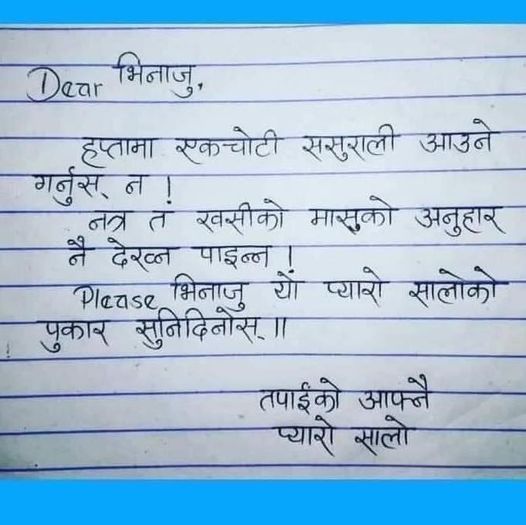 Dear भिनाजु,
हप्तामा एकचोटी ससुराली आउने
गर्नुस् न !
नत्र त खसीको मासुको अनुहार
नै देख्न पाइन्न ।
Please भिनाजु यो प्यारो सालोको
पुकार सुनिदिनोस् ॥
तपाईंको आफ्नै
प्यारो सालो